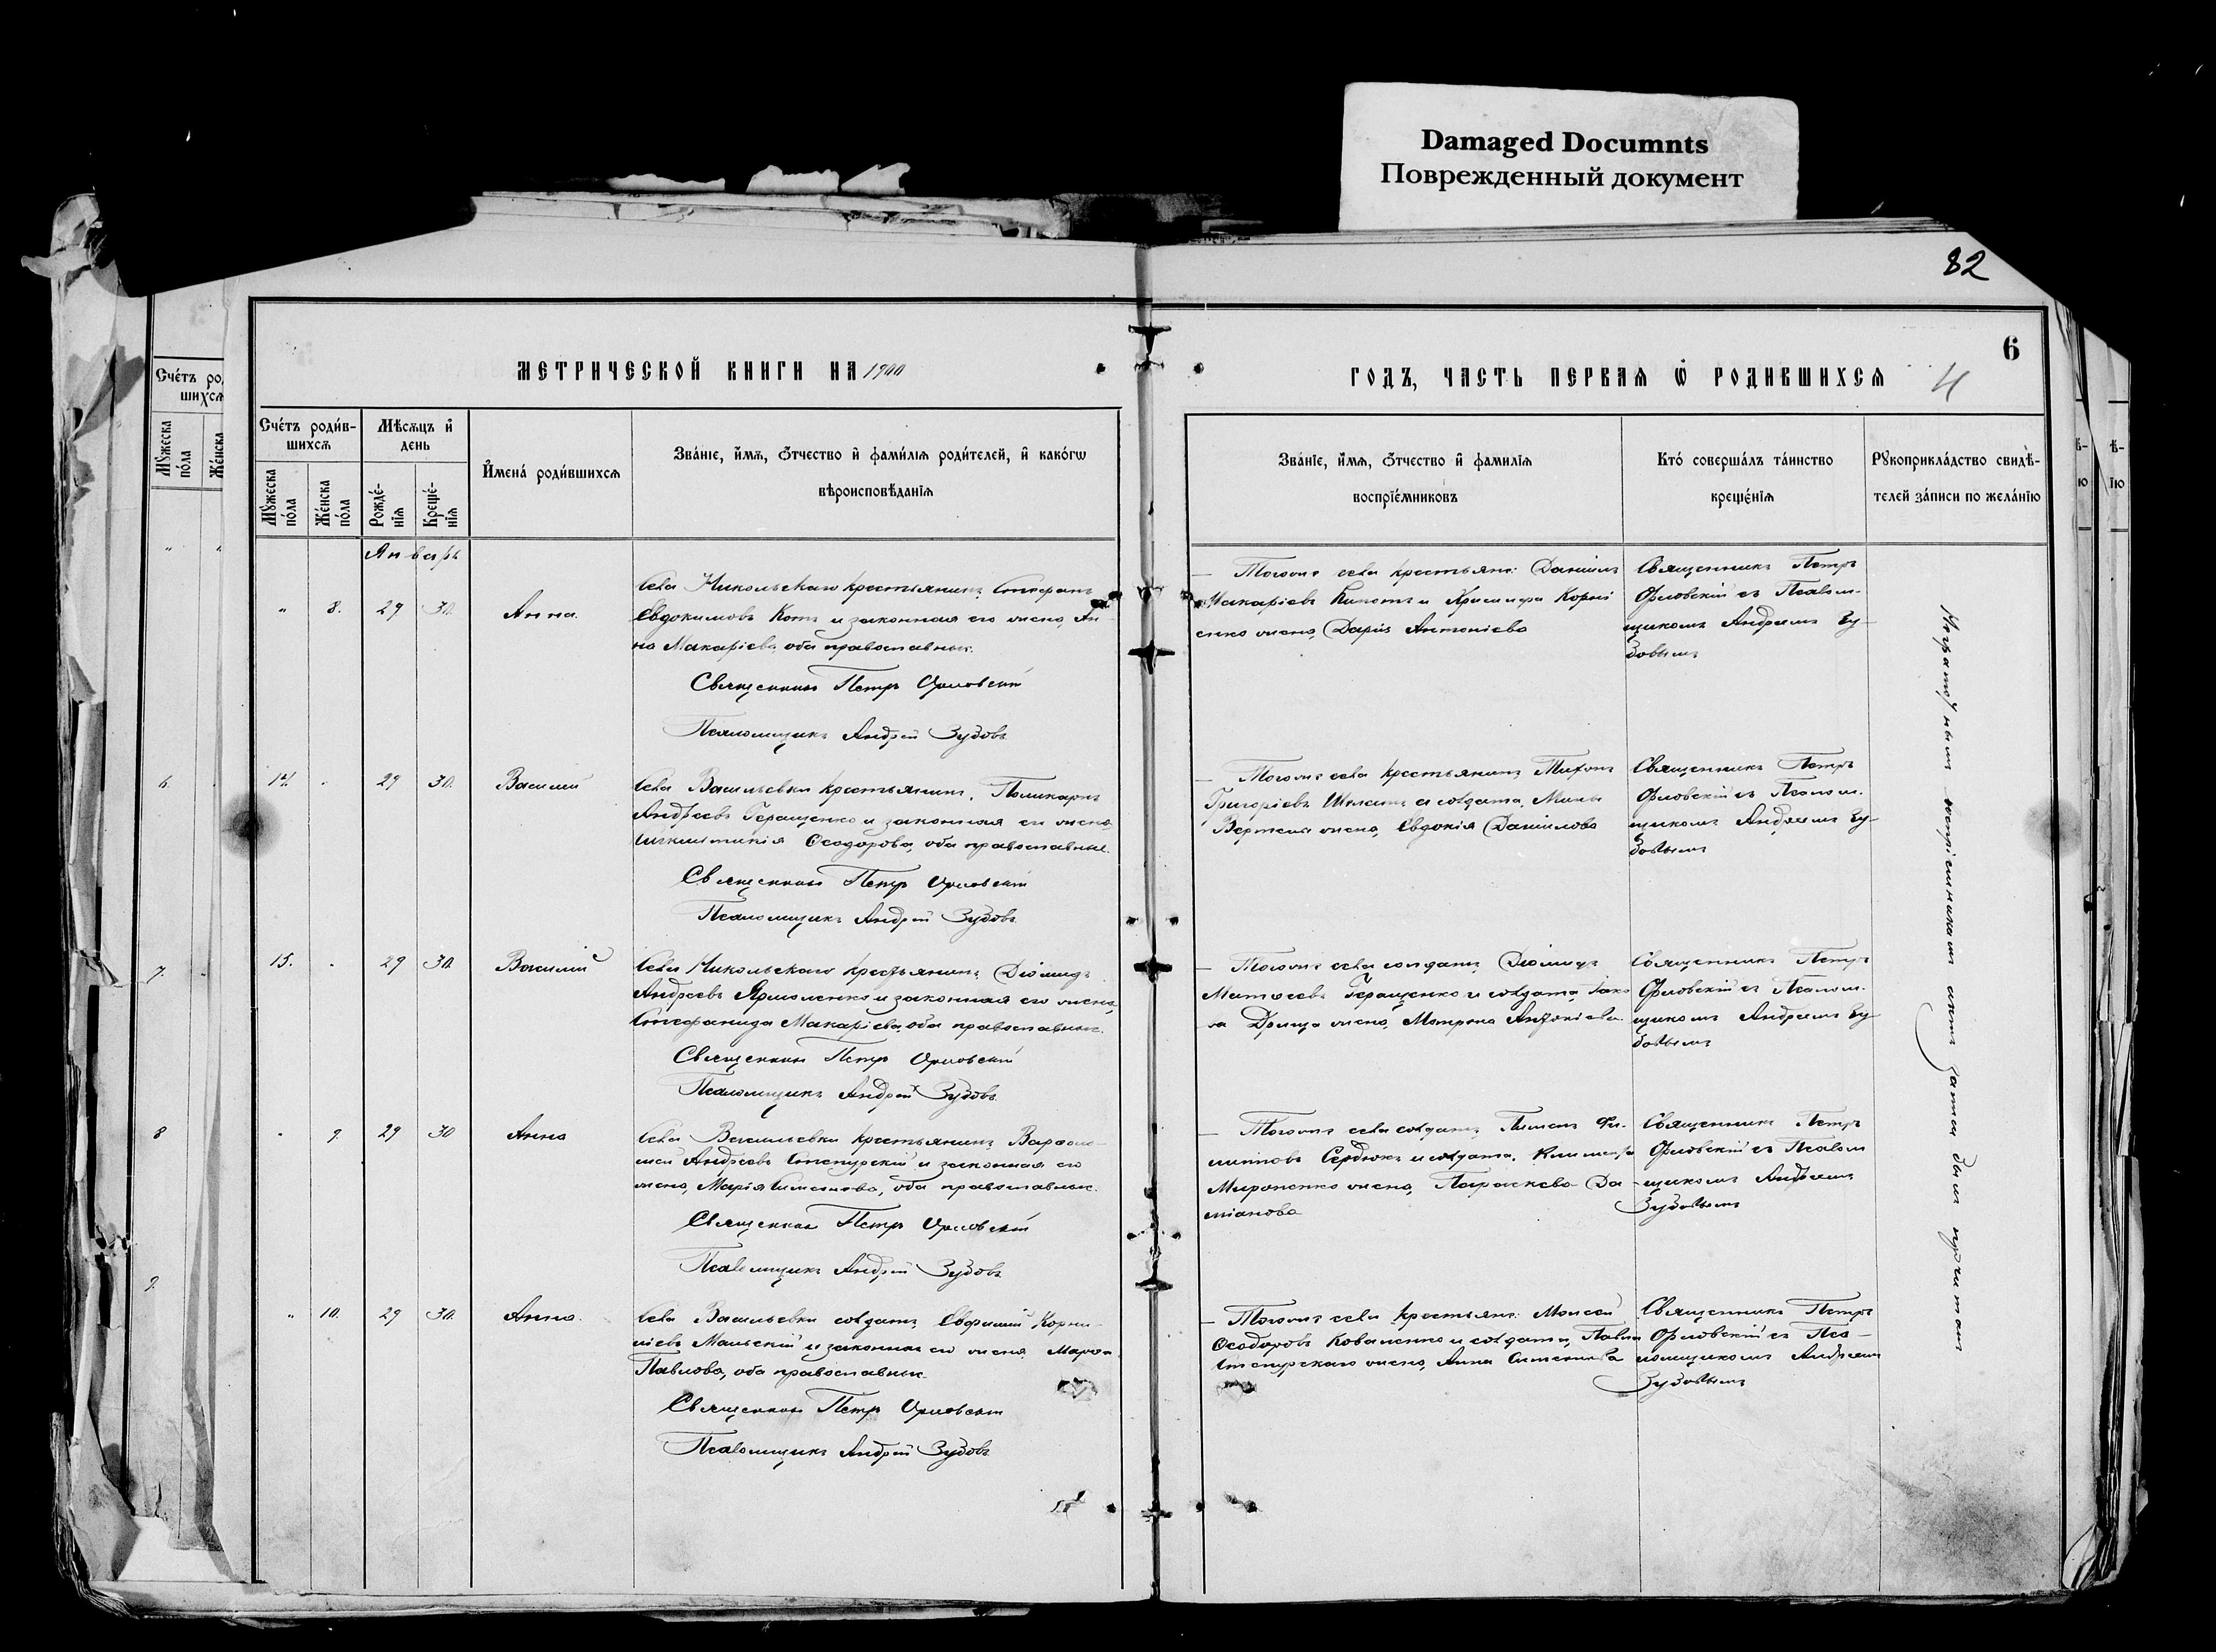 Damaged Documnts
Поврежденный документ
82
6
4
МЕТРИЧЕСКОЙ КНИГИ НА 1900
ГОДЪ, ЧАСТЬ ПЕРВАЯ Ѡ РОДИВШИХСЯ
Счéтъ роди́в-
шихсѧ
Мꙋ́жеска по́ла
Же́нска по́ла
Мѣ́сѧцъ и҆ день
Рождé-
нїѧ
Крещé-
нїѧ
И҆мена́ роди́вшихсѧ
Зва́нїе, и҆́мѧ, ѻ҆́тчество и҆ фами́лїѧ роди́телей, и҆ како́гѡ
вѣроисповѣ́данїѧ
Зва́нїе, и҆́мѧ, ѻ҆́тчество и҆ фами́лїѧ
воспрїе́мниковъ
Кто̀ соверша́лъ та́инство
креще́нїѧ
Рꙋкоприкла́дство свидѣ́-
телей за́писи по жела́нїю
Январь
" 8. 29 30. Анна.
Села Никольскаго крестьянинъ Стефанъ
Евдокимовъ Котъ и законная его жена, Ан-
на Макаріева, оба православные.
Священникъ Петръ Орловскій
Псаломщикъ Андрей Зубовъ
— Тогоже села крестьян: Даніилъ
Макаріевъ
жена, Дарія Антоніева
Священникъ Петръ
Орловскій съ Псалом-
щикомъ Андреемъ Зу-
бовымъ
14. 29 30. Василій
Села Васильевки крестьянинъ, Поликарпъ
Андреевъ Геращенко и законная его жена,
Ѳеодорова, оба православные.
Священникъ Петръ Орловскій
Псаломщикъ Андрей Зубовъ
— Тогоже села крестьянинъ Тихонъ
Григоріевъ и солдата,
жена, Евдокія Даніилова
Священникъ Петръ
Орловскій съ Псалом-
щикомъ Андреемъ Зу-
бовымъ
15. 29 30. Василій
Села Никольскаго крестьянинъ Діомидъ
Андреевъ Ярмоленко и законная его жена,
Стефанида Макаріева, оба православные.
Священникъ Петръ Орловскій
Псаломщикъ Андрей Зубовъ
— Тогоже села солдатъ Діомидъ
Матѳеевъ Геращенко и солдата, Яко-
ва жена, Матрона Антоніева.
Священникъ Петръ
Орловскій съ Псалом-
щикомъ Андреемъ Зу-
бовымъ
9. 29 30 Анна
Села Васильевки крестьянинъ Варѳоло-
мей Андреевъ Степурскій и законная его
жена, Марія Симеонова, оба православные.
Священникъ Петръ Орловскій
Псаломщикъ Андрей Зубовъ
— Тогоже села солдатъ, Пименъ Фи-
липповъ Сердюкъ и солдата,
Мироненко жена, Параскева Да-
міанова
Священникъ Петръ
Орловскій съ Псалом
щикомъ Андреемъ
Зубовымъ
" 10. 29 30. Анна.
Села Васильевки солдатъ, Евфимій Корни-
ліевъ Мальскій и законная его жена Марѳа
Павлова, оба православные.
Священникъ Петръ Орловскій
Псаломщикъ Андрей Зубовъ
— Тогоже села крестьян: Моисей
Ѳеодоровъ Коваленко и солдата, Павла
Степурскаго жена, Анна Симеонова
Священникъ Петръ
Орловскій съ Пса-
ломщикомъ Андреемъ
Зубовымъ
6.
7.
8
9.